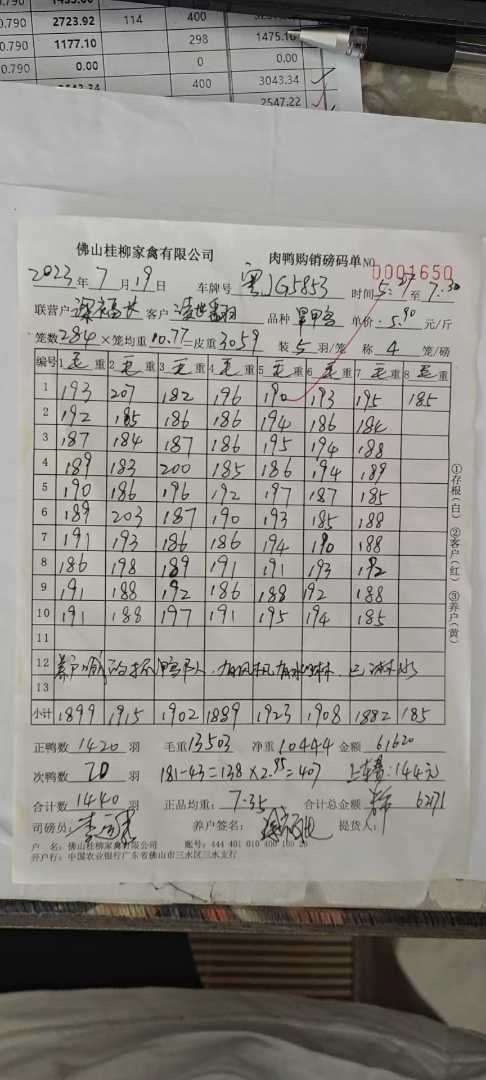 0.790 2723.92 114 400
0.790 1177.10 298 1475.10
0.790 0.00 0 0.00
400 3043.34
2547.22
佛山桂柳家禽有限公司 肉鸭购销磅码单 NO 0001650
2023年7月19日 车牌号 粤JG5853 时间5:27至7:30
联营户 客户 品种 单价:5.90元/斤
笼数284×笼均重10.77=皮重3059 装5羽/笼 称4笼/磅
编号 1毛重 2毛重 3毛重 4毛重 5毛重 6毛重 7毛重 8毛重
1 193 207 182 196 190 193 195 185
2 192 185 186 186 194 186 186
3 187 184 187 186 195 194 188
4 189 183 200 185 186 194 189
5 190 186 196 192 197 187 185
6 189 203 187 190 193 185 188
7 191 193 186 186 194 190 188
8 186 198 189 191 191 193 192
9 191 188 192 186 188 192 188
10 191 188 197 191 195 194 185
11
12 养户 的 鸭 人,有风机有水淋,已淋水
13
小计 1899 1915 1902 1889 1923 1908 1882 185
正鸭数1420羽 毛重13503 净重10444 金额61620
次鸭数20羽 181-43=138×2.95=407 上车费:144元
合计数1440羽 正品均重:7.35 合计总金额 62171
司磅员 养户签名: 提货人:
户 名:佛山桂柳家禽有限公司 账号:444 401 010 400
开户行:中国农业银行广东省佛山市三水区三水支行
①存根(白) ②客户(红) ③养户(黄)